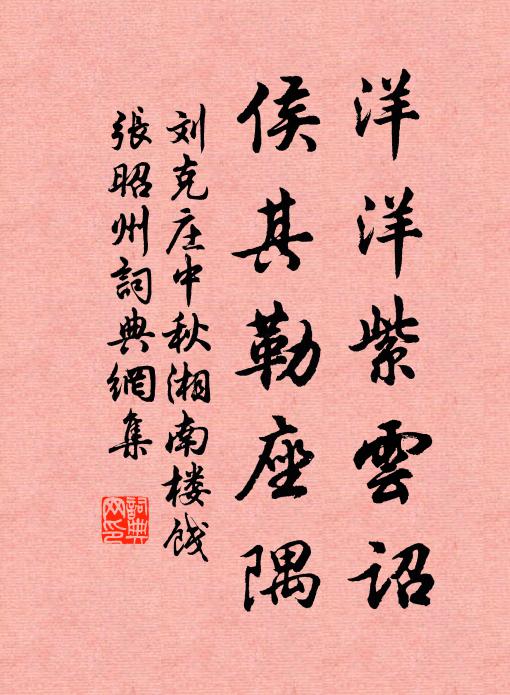 洋洋紫雲詔
侯其勒座隅
刘克庄中秋湘南楼饯
張昭州詞典網集
詞典网印